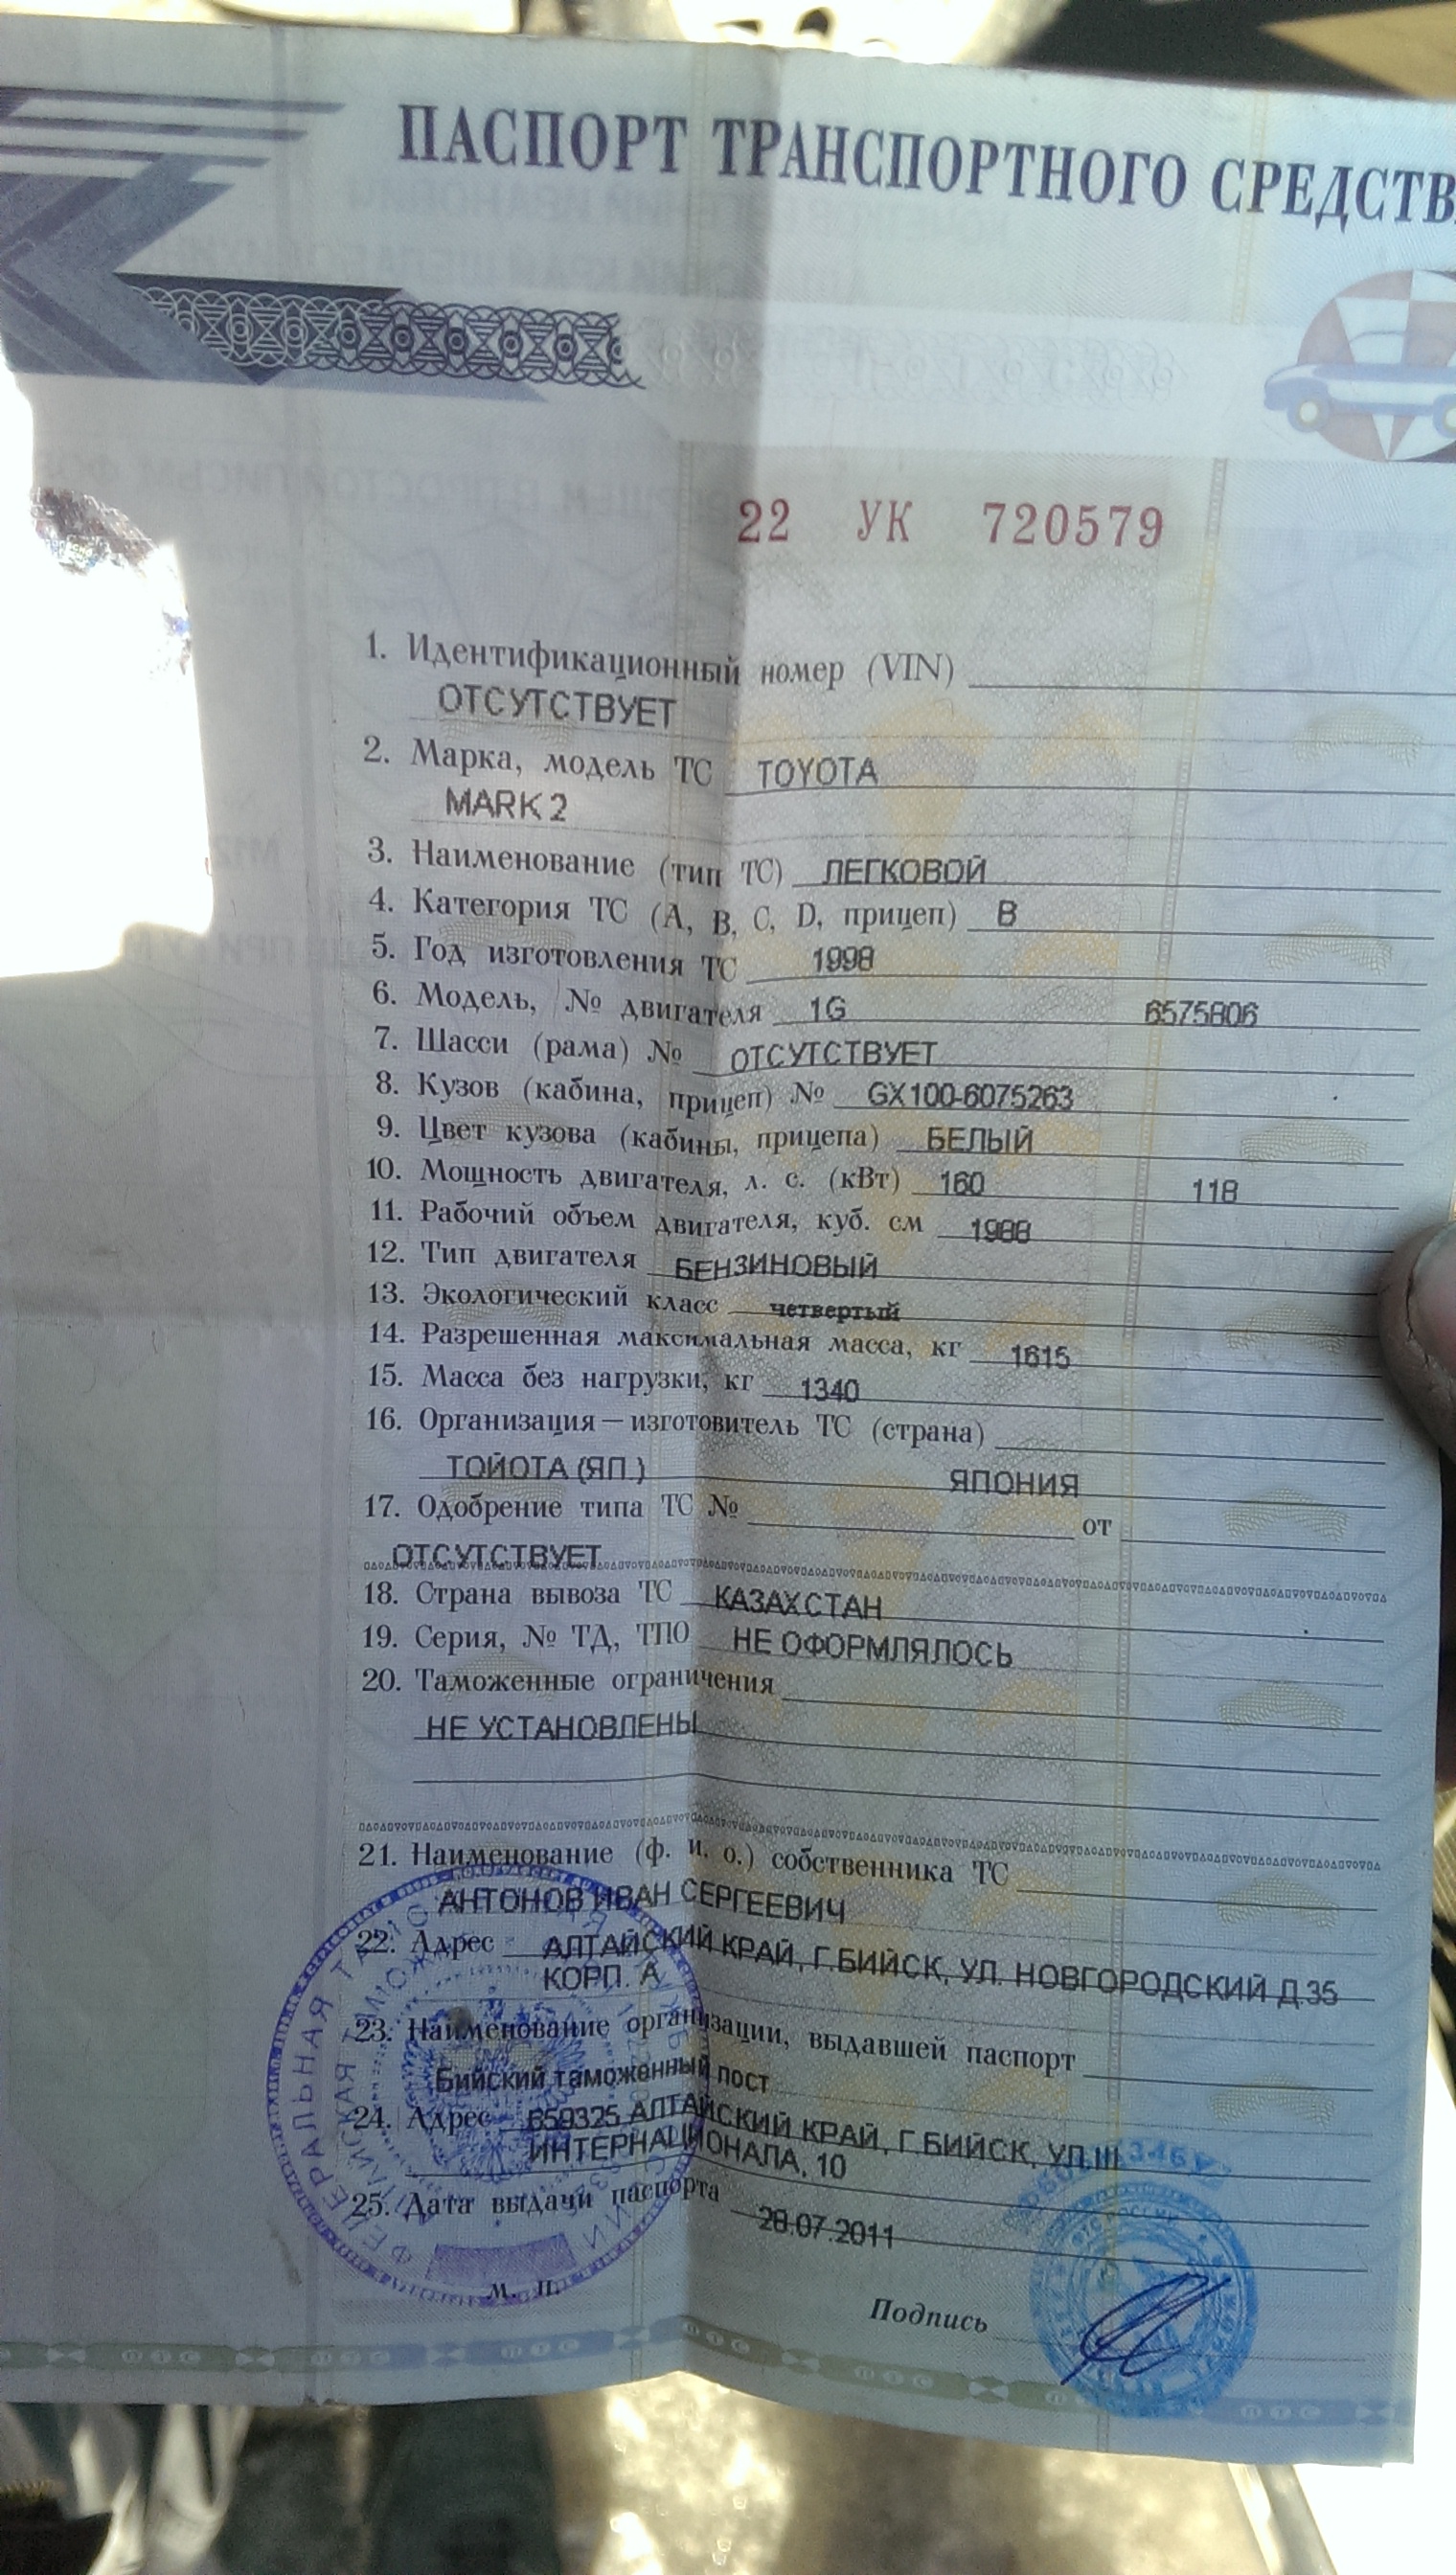 ПАСПОРТ ТРАНСПОРТНОГО СРЕДСТВ
22 УК 720579
1. Идентификационный номер (VIN)
ОТСУТСТВУЕТ
2. Марка, модель ТС TOYOTA
MARK 2
3. Наименование (тип ТС) ЛЕГКОВОЙ
4. Категория ТС (A, B, C, D, прицеп) B
5. Год изготовления ТС 1998
6. Модель, № двигателя 1G 6575806
7. Шасси (рама) № ОТСУТСТВУЕТ
8. Кузов (кабина, прицеп) № GX100-6075263
9. Цвет кузова (кабины, прицепа) БЕЛЫЙ
10. Мощность двигателя, л. с. (кВт) 160 118
11. Рабочий объем двигателя, куб. см 1988
12. Тип двигателя БЕНЗИНОВЫЙ
13. Экологический класс четвертый
14. Разрешенная максимальная масса, кг 1615
15. Масса без нагрузки, кг 1340
16. Организация — изготовитель ТС (страна)
ТОЙОТА (ЯП.) ЯПОНИЯ
17. Одобрение типа ТС № от
ОТСУТСТВУЕТ
18. Страна вывоза ТС КАЗАХСТАН
19. Серия, № ТД, ТПО НЕ ОФОРМЛЯЛОСЬ
20. Таможенные ограничения
НЕ УСТАНОВЛЕНЫ
21. Наименование (ф. и. о.) собственника ТС
АНТОНОВ ИВАН СЕРГЕЕВИЧ
22. Адрес АЛТАЙСКИЙ КРАЙ, Г.БИЙСК, УЛ. НОВГОРОДСКИЙ Д.35
КОРП. А
23. Наименование организации, выдавшей паспорт
Бийский таможенный пост
24. Адрес 659325 АЛТАЙСКИЙ КРАЙ, Г.БИЙСК, УЛ.III
ИНТЕРНАЦИОНАЛА, 10
25. Дата выдачи паспорта 28.07.2011
М. П.
Подпись